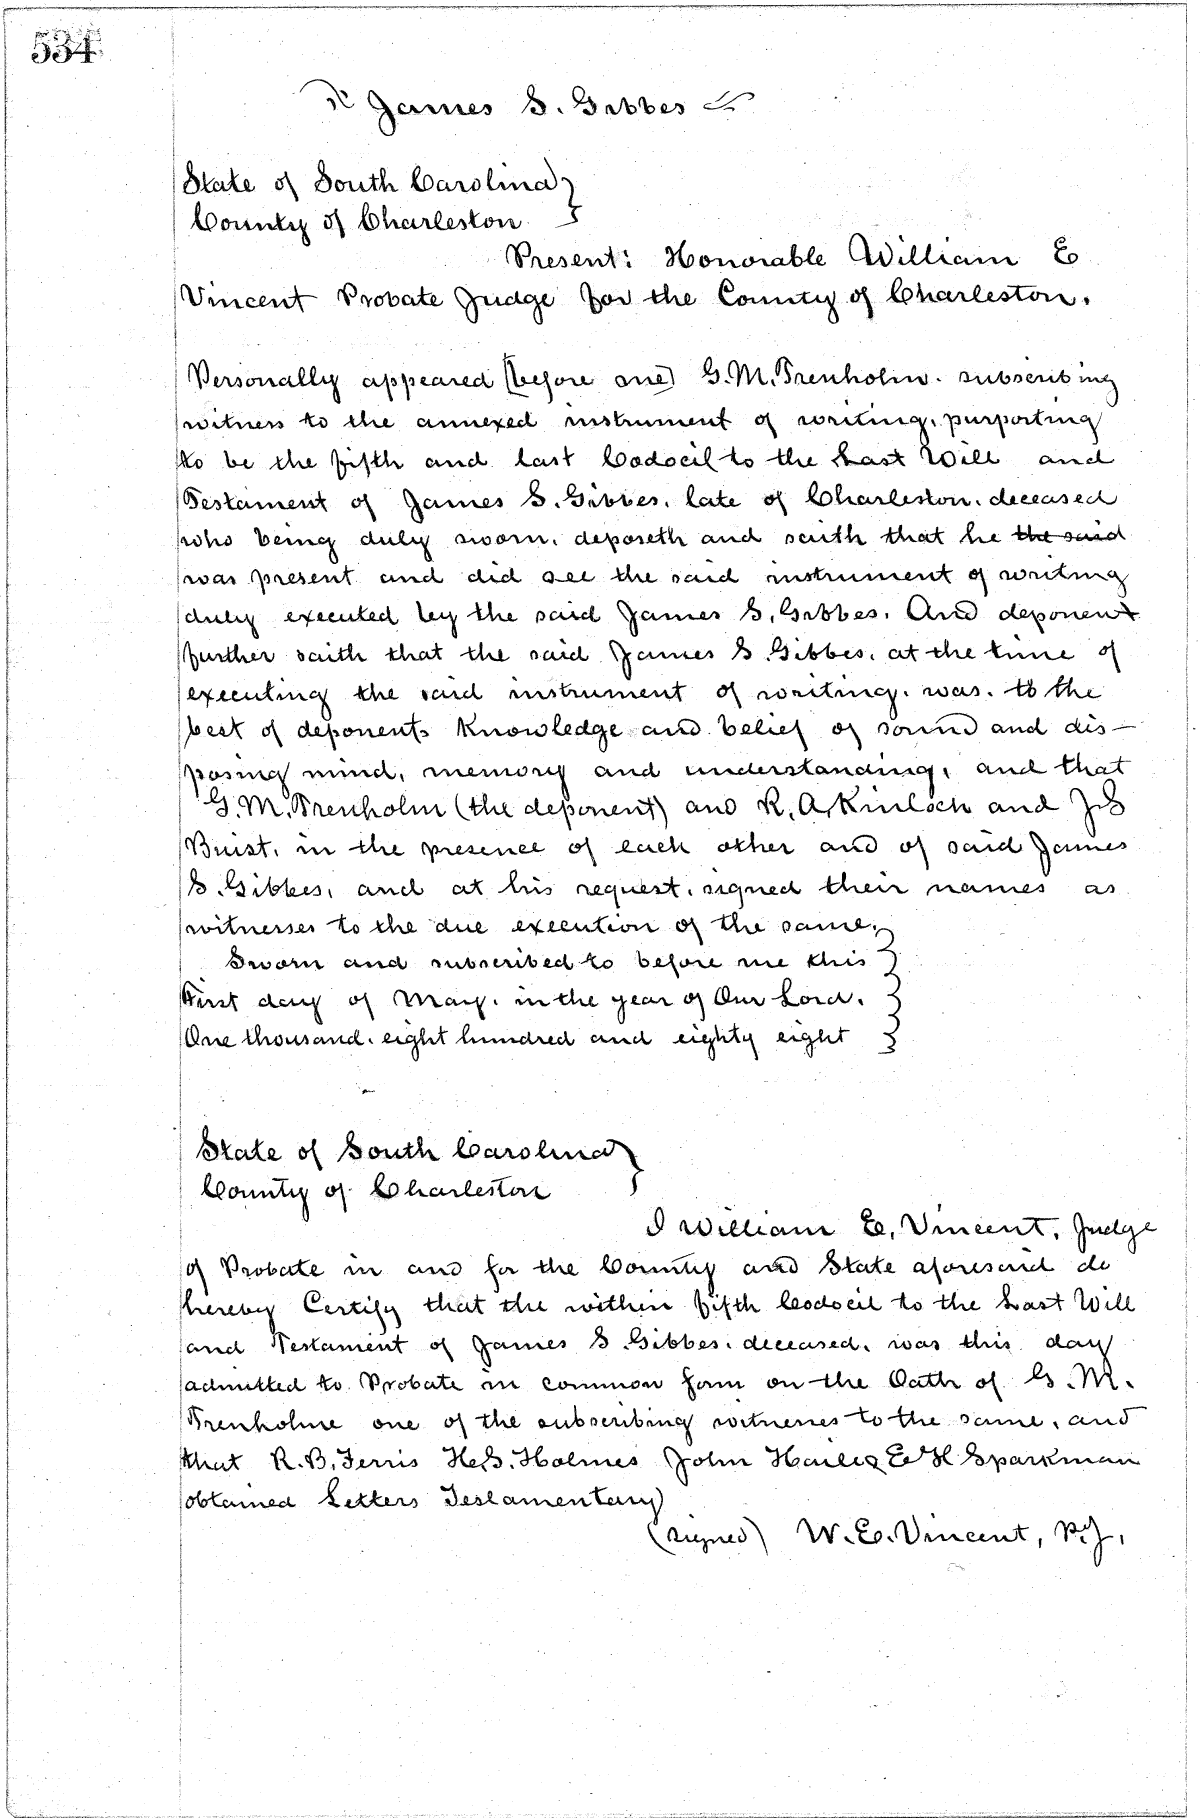 534
James S. Gibbes
State of South Carolina }
County of Charleston }
Present: Honorable William E
Vincent Probate Judge for the County of Charleston.
Personally appeared (before me) G. M. Trenholm. subscribing
witness to the annexed instrument of writing, purporting
to be the fifth and last Codocil to the Last Will and
Testament of James S. Gibbes, late of Charleston. deceased
who being duly sworn, deposeth and saith that he the said
was present and did see the said instrument of writing
duly executed by the said James S. Gibbes. And deponent
further saith that the said James S. Gibbes, at the time of
executing the said instrument of writing, was, to the
best of deponents knowledge and belief of sound and dis-
posing mind, memory and understanding, and that
G. M. Trenholm (the deponent) and R. A. Kinloch and
Buist, in the presence of each other and of said James
S. Gibbes, and at his request, signed their names as
witnesses to the due execution of the same.
Sworn and subscribed to before me this }
First day of May, in the year of Our Lord. }
One thousand, eight hundred and eighty eight }
State of South Carolina }
County of Charleston }
I William E. Vincent, Judge
of Probate in and for the County and State aforesaid do
hereby Certify that the within fifth Codocil to the Last Will
and Testament of James S. Gibbes. deceased, was this day
admitted to Probate in common form on the Oath of G. M.
Trenholme one of the subscribing witnesses to the same, and
that R. B. Ferris H. S. Holmes John E H Sparkman
obtained Letters Testamentary
(signed) W. E. Vincent, P. J.